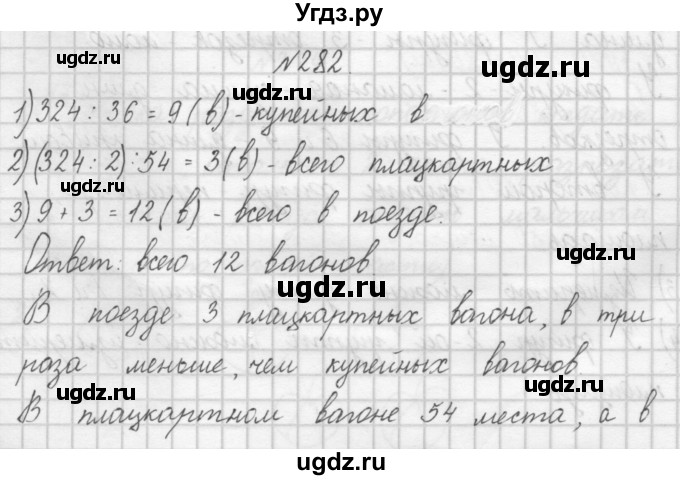 Угдз.ру
№282.
1) 324 : 36 = 9 (в) - купейных в
2) (324 : 2) : 54 = 3 (в) - всего плацкартных
3) 9 + 3 = 12 (в) - всего в поезде.
Ответ: всего 12 вагонов
В поезде 3 плацкартных вагона, в три
раза меньше, чем купейных вагонов
В плацкартном вагоне 54 места, а в
ugdz.ru
ugdz.ru
ugdz.ru
ugdz.ru
ugdz.ru
ugdz.ru
ugdz.ru
ugdz.ru
ugdz.ru
ugdz.ru
ugdz.ru